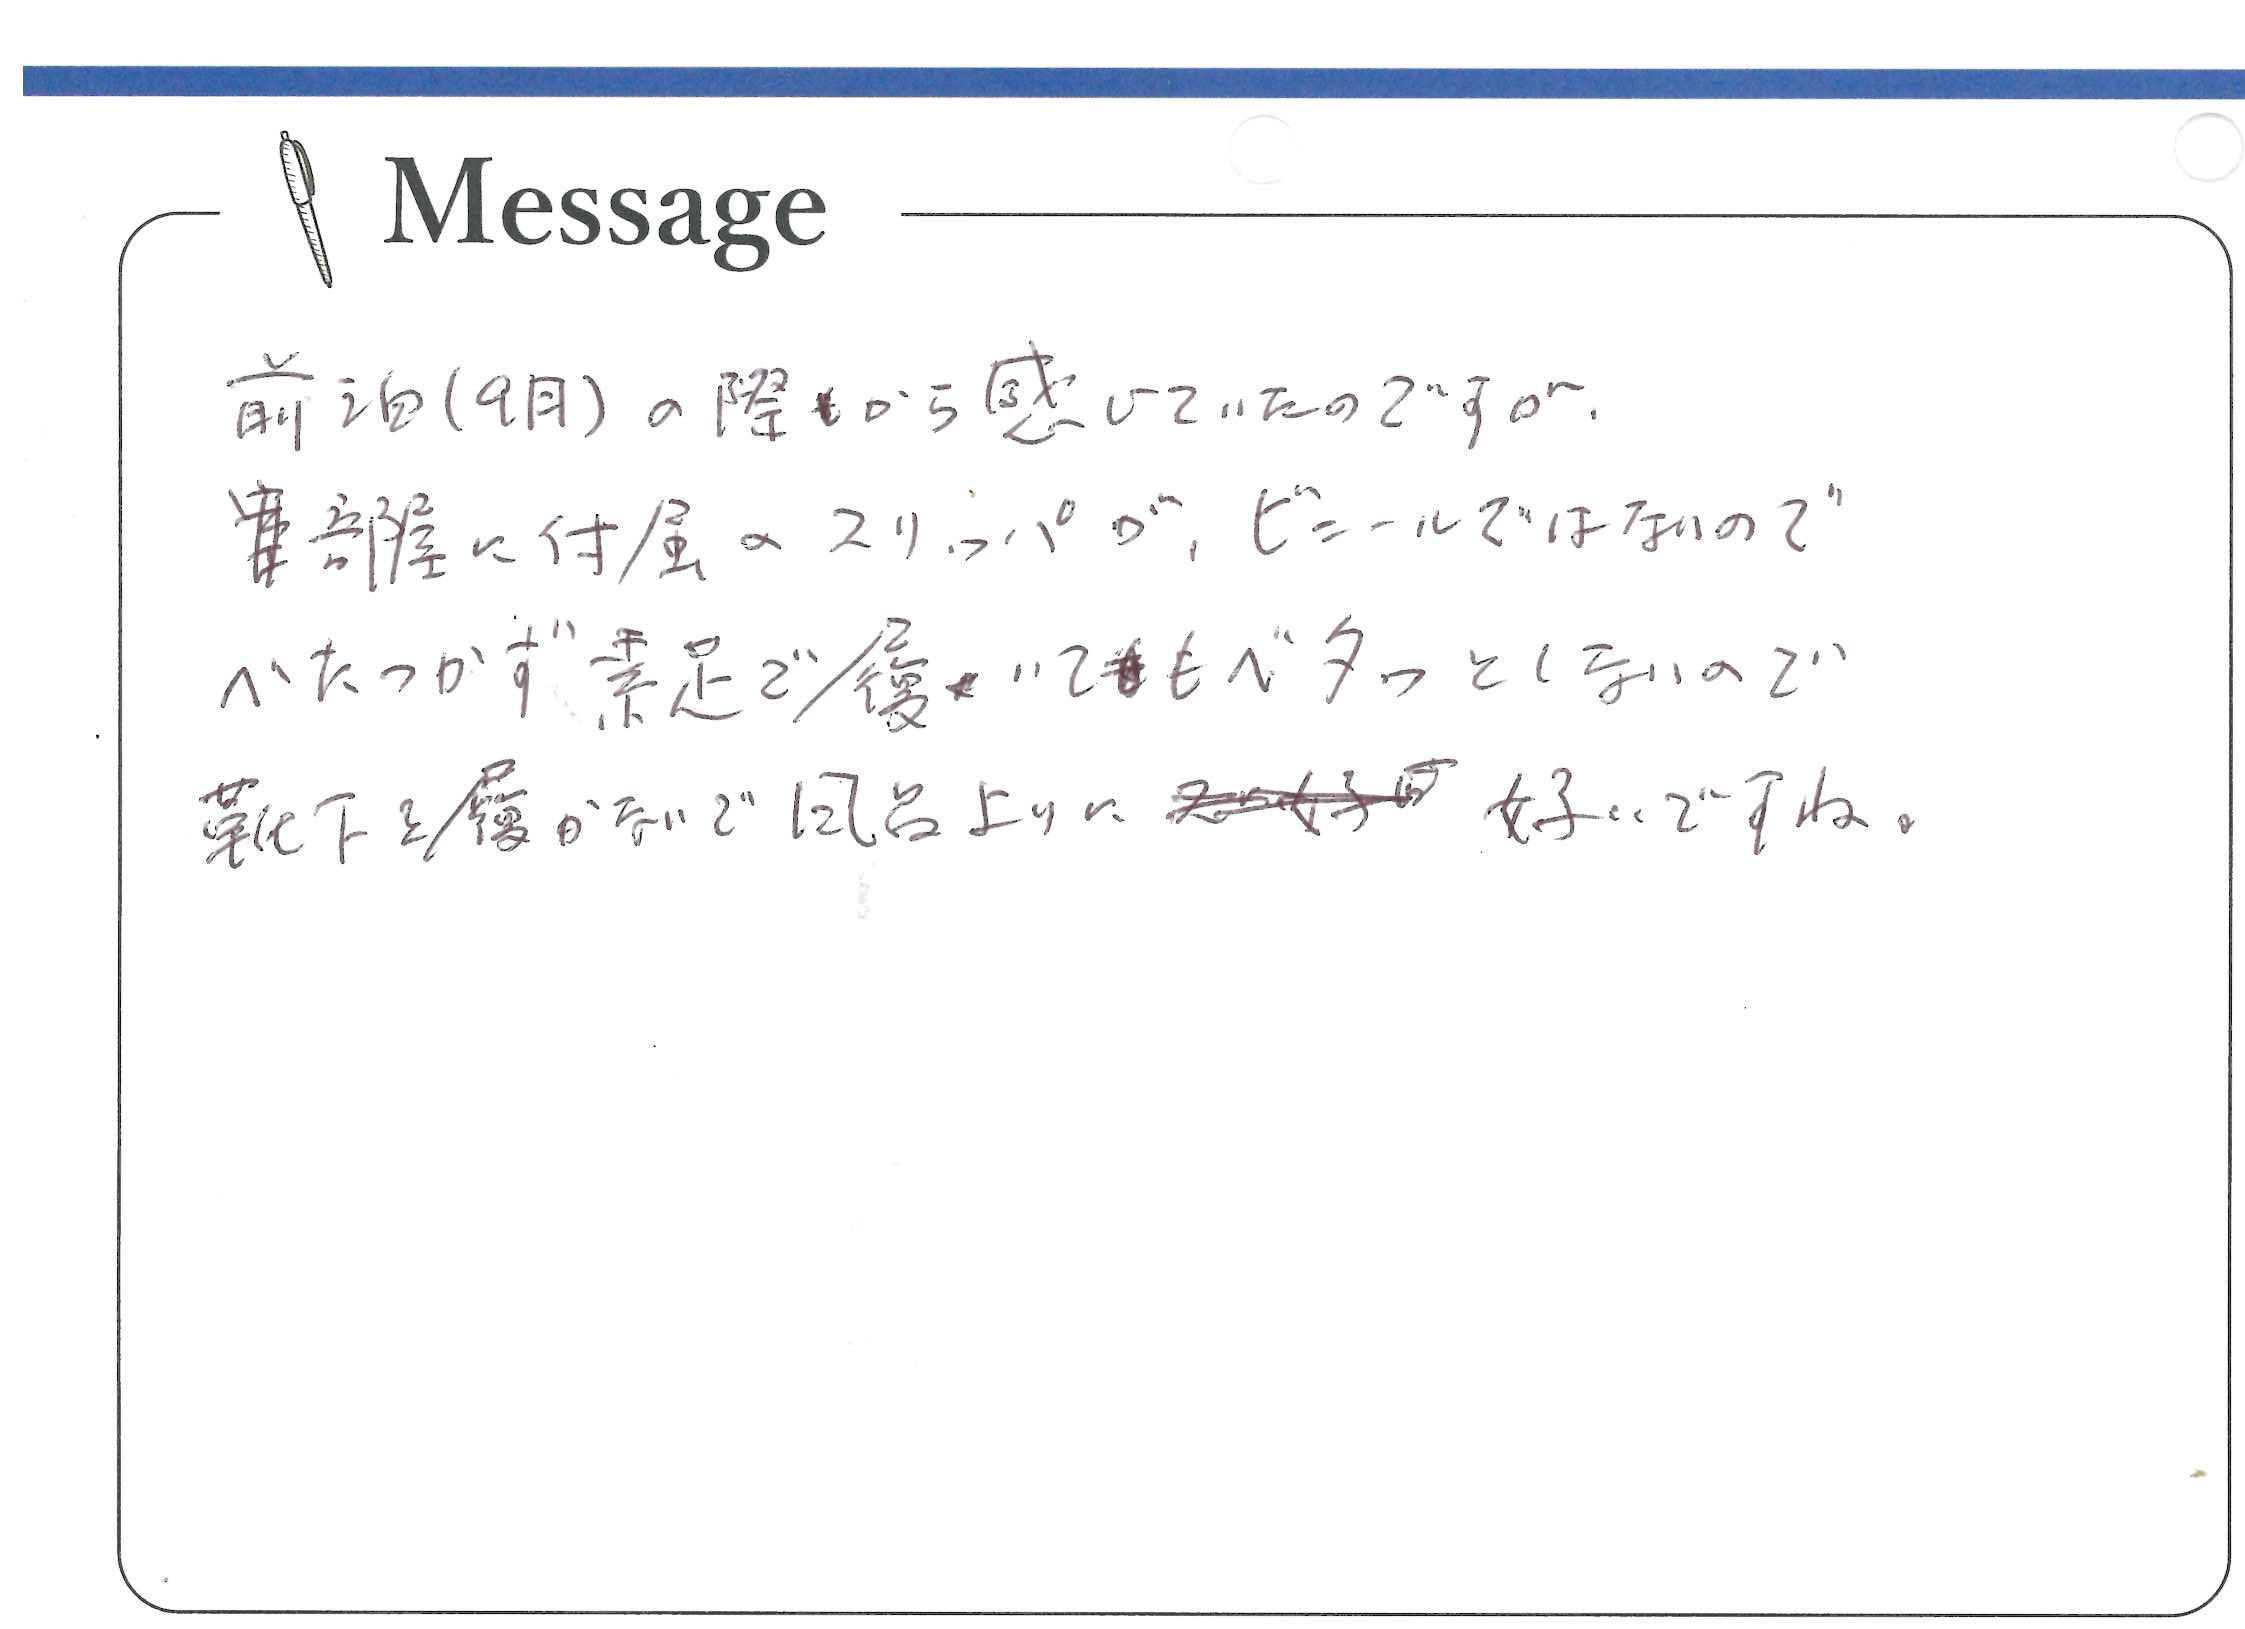 Message
前泊(9月)の際から感じていたのですが、
部屋に付属のスリッパが、ビニールではないので
べたつかず素足で履いてもベタっとしないので
靴下を履かないで風呂上りに 好いですね。